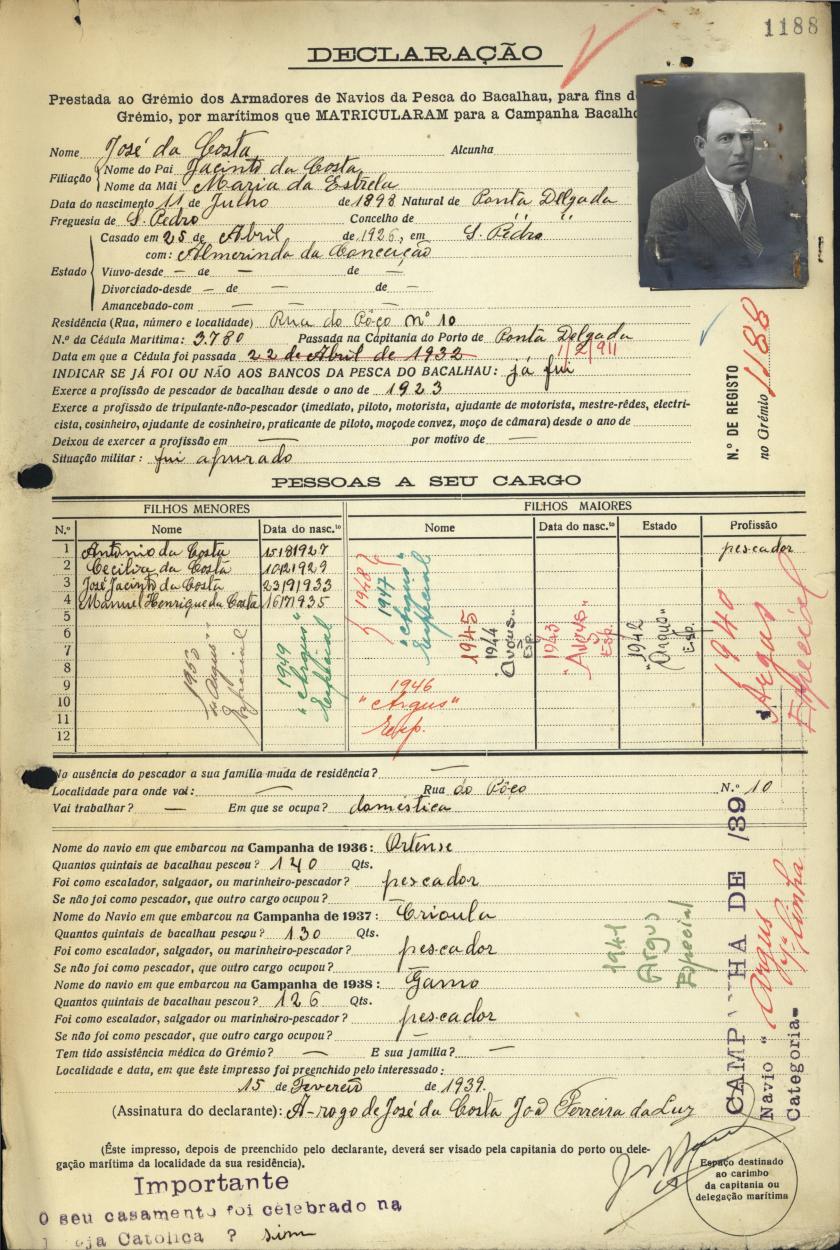 1188
DECLARAÇÃO
Prestada ao Grémio dos Armadores de Navios da Pesca do Bacalhau, para fins d
Grémio, por marítimos que MATRICULARAM para a Campanha Bacalho
Nome José da Costa Alcunha
Filiação Nome do Pai Jacinto da Costa
Nome da Mãi Maria da Estrela
Data do nascimento 11 de Julho de 1898 Natural de Ponta Delgada
Freguesia de S. Pedro Concelho de " "
Casado em 25 de Abril de 1926, em S. Pedro
com: Almerinda da Conceição
Estado Viuvo-desde — de — de —
Divorciado-desde — de — de —
Amancebado-com — —
Residência (Rua, número e localidade) Rua do Pôço nº 10
N.º da Cédula Marítima: 3780 Passada na Capitania do Porto de Ponta Delgada
Data em que a Cédula foi passada 22 de Abril de 1932 1/2/911
INDICAR SE JÁ FOI OU NÃO AOS BANCOS DA PESCA DO BACALHAU: já fui
Exerce a profissão de pescador de bacalhau desde o ano de 1923
Exerce a profissão de tripulante-não-pescador (imediato, piloto, motorista, ajudante de motorista, mestre-rêdes, electri-
cista, cosinheiro, ajudante de cosinheiro, praticante de piloto, moço de convez, moço de câmara) desde o ano de
Deixou de exercer a profissão em — por motivo de —
Situação militar: fui apurado
N.º DE REGISTO
no Grémio 1188
PESSOAS A SEU CARGO
FILHOS MENORES FILHOS MAIORES
N.º Nome Data do nasc.to Nome Data do nasc.to Estado Profissão
1 Antonio da Costa 15/8/1927 pescador
2 Cecilia da Costa 1929
3 José Jacinto da Costa 23/9/1933
4 Manuel Henrique da Costa 1935
5
6
7
8
9
10
11
12
1950 "Argus" Especial
1949 "Argus" Especial
1948
1947 "Argus" Especial
1946 "Argus" Esp.
1945
1944 "Argus" Esp.
1943 "Argus" Esp.
1942 "Argus" Esp.
1940 Argus Especial
Na ausência do pescador a sua família muda de residência? —
Localidade para onde vai: — Rua do Pôço N.º 10
Vai trabalhar? — Em que se ocupa? doméstica
Nome do navio em que embarcou na Campanha de 1936: Ortense
Quantos quintais de bacalhau pescou? 140 Qts.
Foi como escalador, salgador, ou marinheiro-pescador? pescador
Se não foi como pescador, que outro cargo ocupou? —
Nome do Navio em que embarcou na Campanha de 1937: Crioula
Quantos quintais de bacalhau pescou? 130 Qts.
Foi como escalador, salgador, ou marinheiro-pescador? pescador
Se não foi como pescador, que outro cargo ocupou? —
Nome do navio em que embarcou na Campanha de 1938: Gamo
Quantos quintais de bacalhau pescou? 126 Qts.
Foi como escalador, salgador ou marinheiro-pescador? pescador
Se não foi como pescador, que outro cargo ocupou? —
Tem tido assistência médica do Grémio? — E sua família? —
Localidade e data, em que êste impresso foi preenchido pelo interessado:
15 de Fevereiro de 1939.
(Assinatura do declarante): A-rogo de José da Costa João Ferreira da Luz
1941 Argus Especial
CAMP HA DE /39
Navio " Argus
Categoria- 1ª linha
(Êste impresso, depois de preenchido pelo declarante, deverá ser visado pela capitania do porto ou dele-
gação marítima da localidade da sua residência).
Espaço destinado
ao carimbo
da capitania ou
delegação marítima
Importante
O seu casamento foi celebrado na
I eja Catolica ? sim